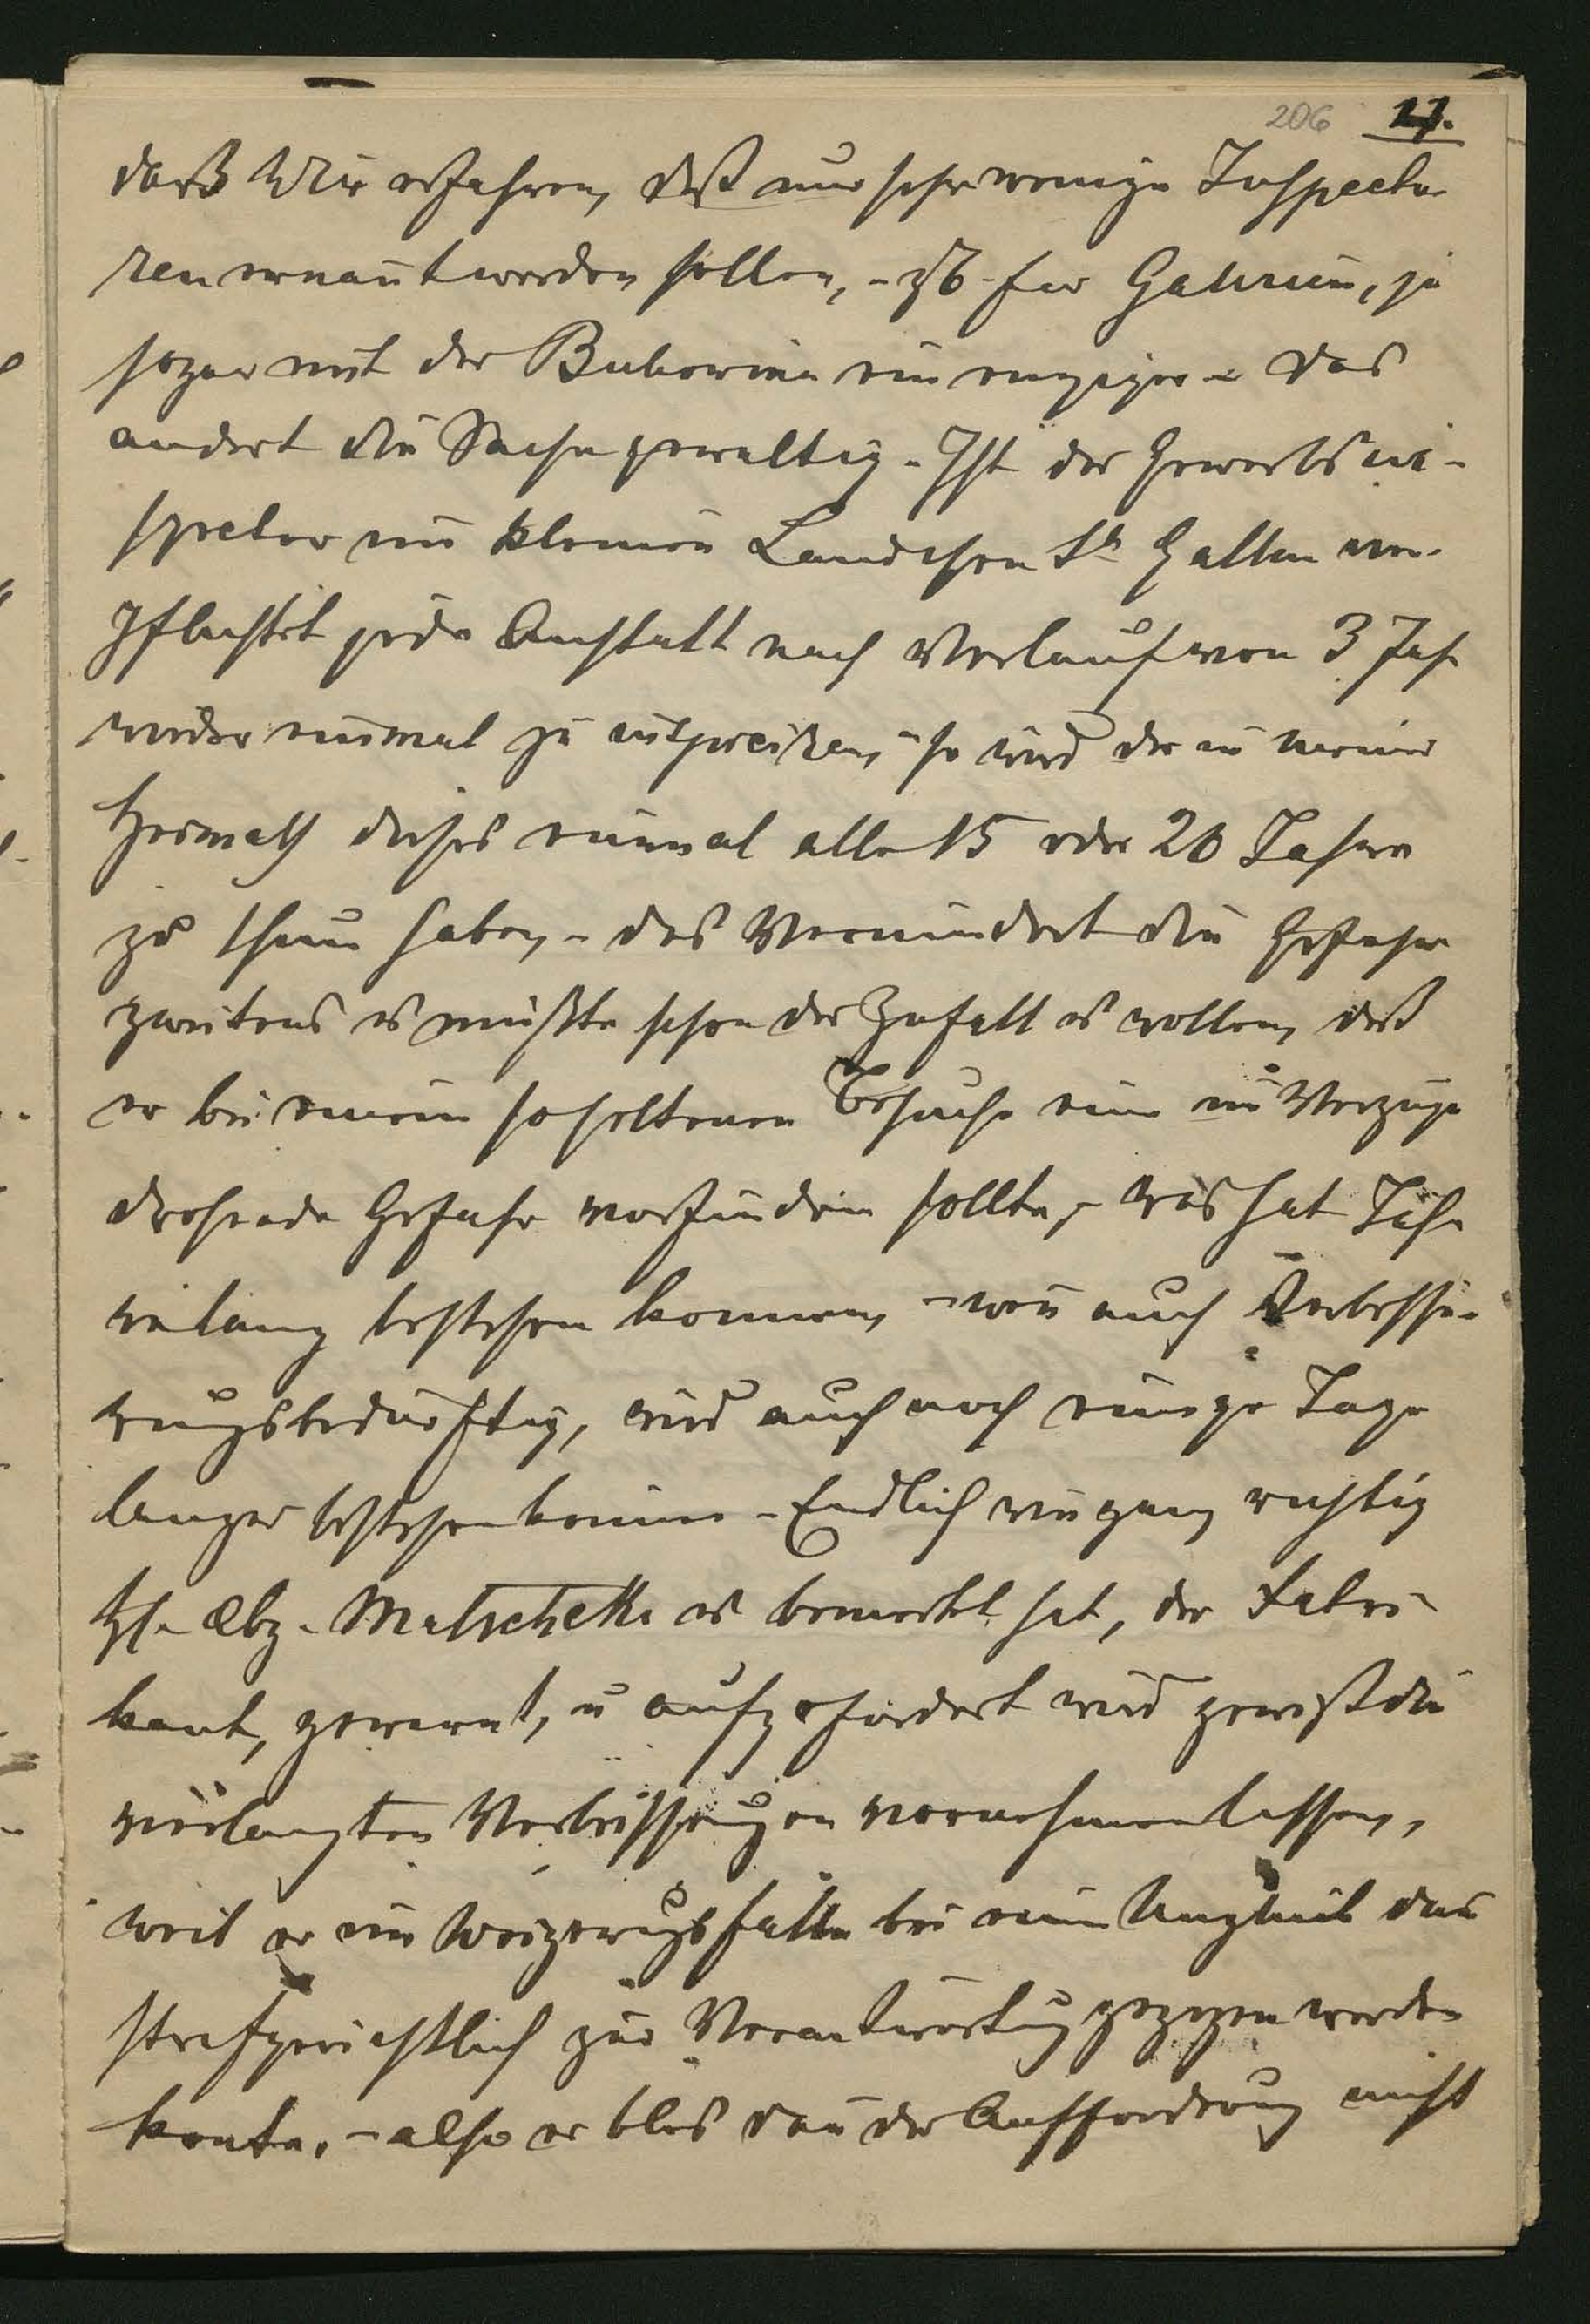 206 11.
daß Wir erfahren, daß nur sehr wenige Inspecto
ren ernaut werden sollen, - zb für Galizien, ja
sogar mit der Bukowina ein einziger - das
andert die Sache gewaltig - Ist der Gewerbsin-
spector im kleinen Ländchen St Gallen ver-
pflichtet jede Anstalt nach Verlauf von 3 Jah
wieder einmal zu inspiciren, so wird der in meiner
Heimath dieses einmal alle 15 oder 20 Jahre
zu thun haben, - das Vermindert die Gefahr
zweitens es müßte schon der Zufall es wollen, daß
er bei einem so seltenen Besuche eine im Verzuge
drohende Gefahr vorfinden sollte, - was hat Jah
relang bestehen konnen, - wen auch Verbesse-
rungsbedürftig, wird auch noch einige Tage
langer bestehen könen - Endlich wie ganz richtig
H. Abg. Matscheko es bemerkt hat, der Fabri-
kant, gewarnt, u aufgefordert wird gewiß die
verlangten Verbesserungen vornehmen lassen,
weil er im Weigerungsfalle bei einem Unglück dan
strafgerichtlich zur Verantwortung gezogen werden
konte, - also er blos dan der Aufforderung nicht